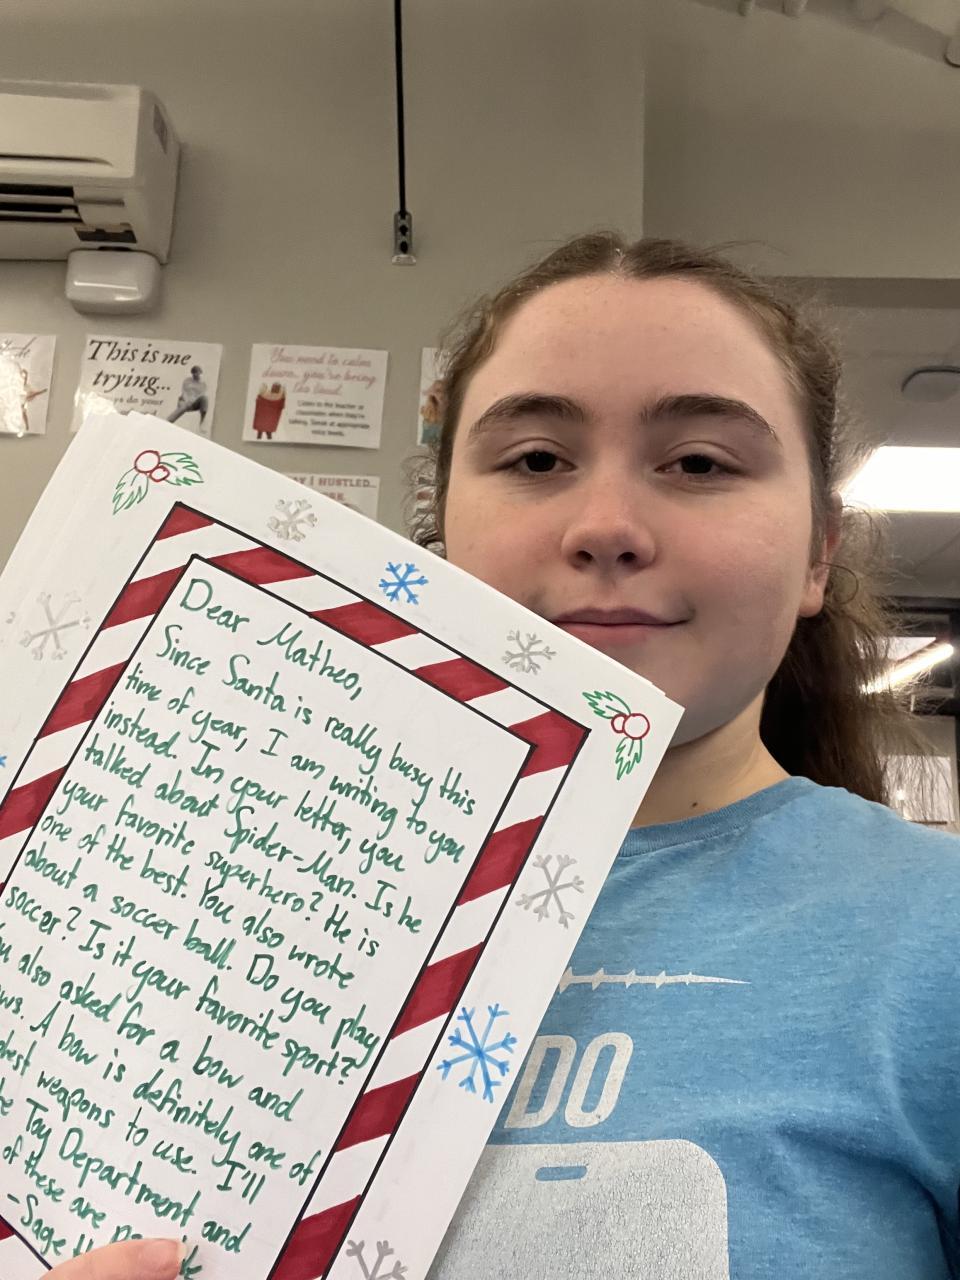 This is me
trying...
You need to calm
down, you're being
too loud.
Listen to the teacher or
classmates when they're
talking. Speak at appropriate
voice levels.
I HUSTLED...
Dear Matheo,
Since Santa is really busy this
time of year, I am writing to you
instead. In your letter, you
talked about Spider-Man. Is he
your favorite superhero? He is
one of the best. You also wrote
about a soccer ball. Do you play
soccer? Is it your favorite sport?
also asked for a bow and
A bow is definitely one of
weapons to use. I'll
Toy Department and
of these are
-Sage
DO